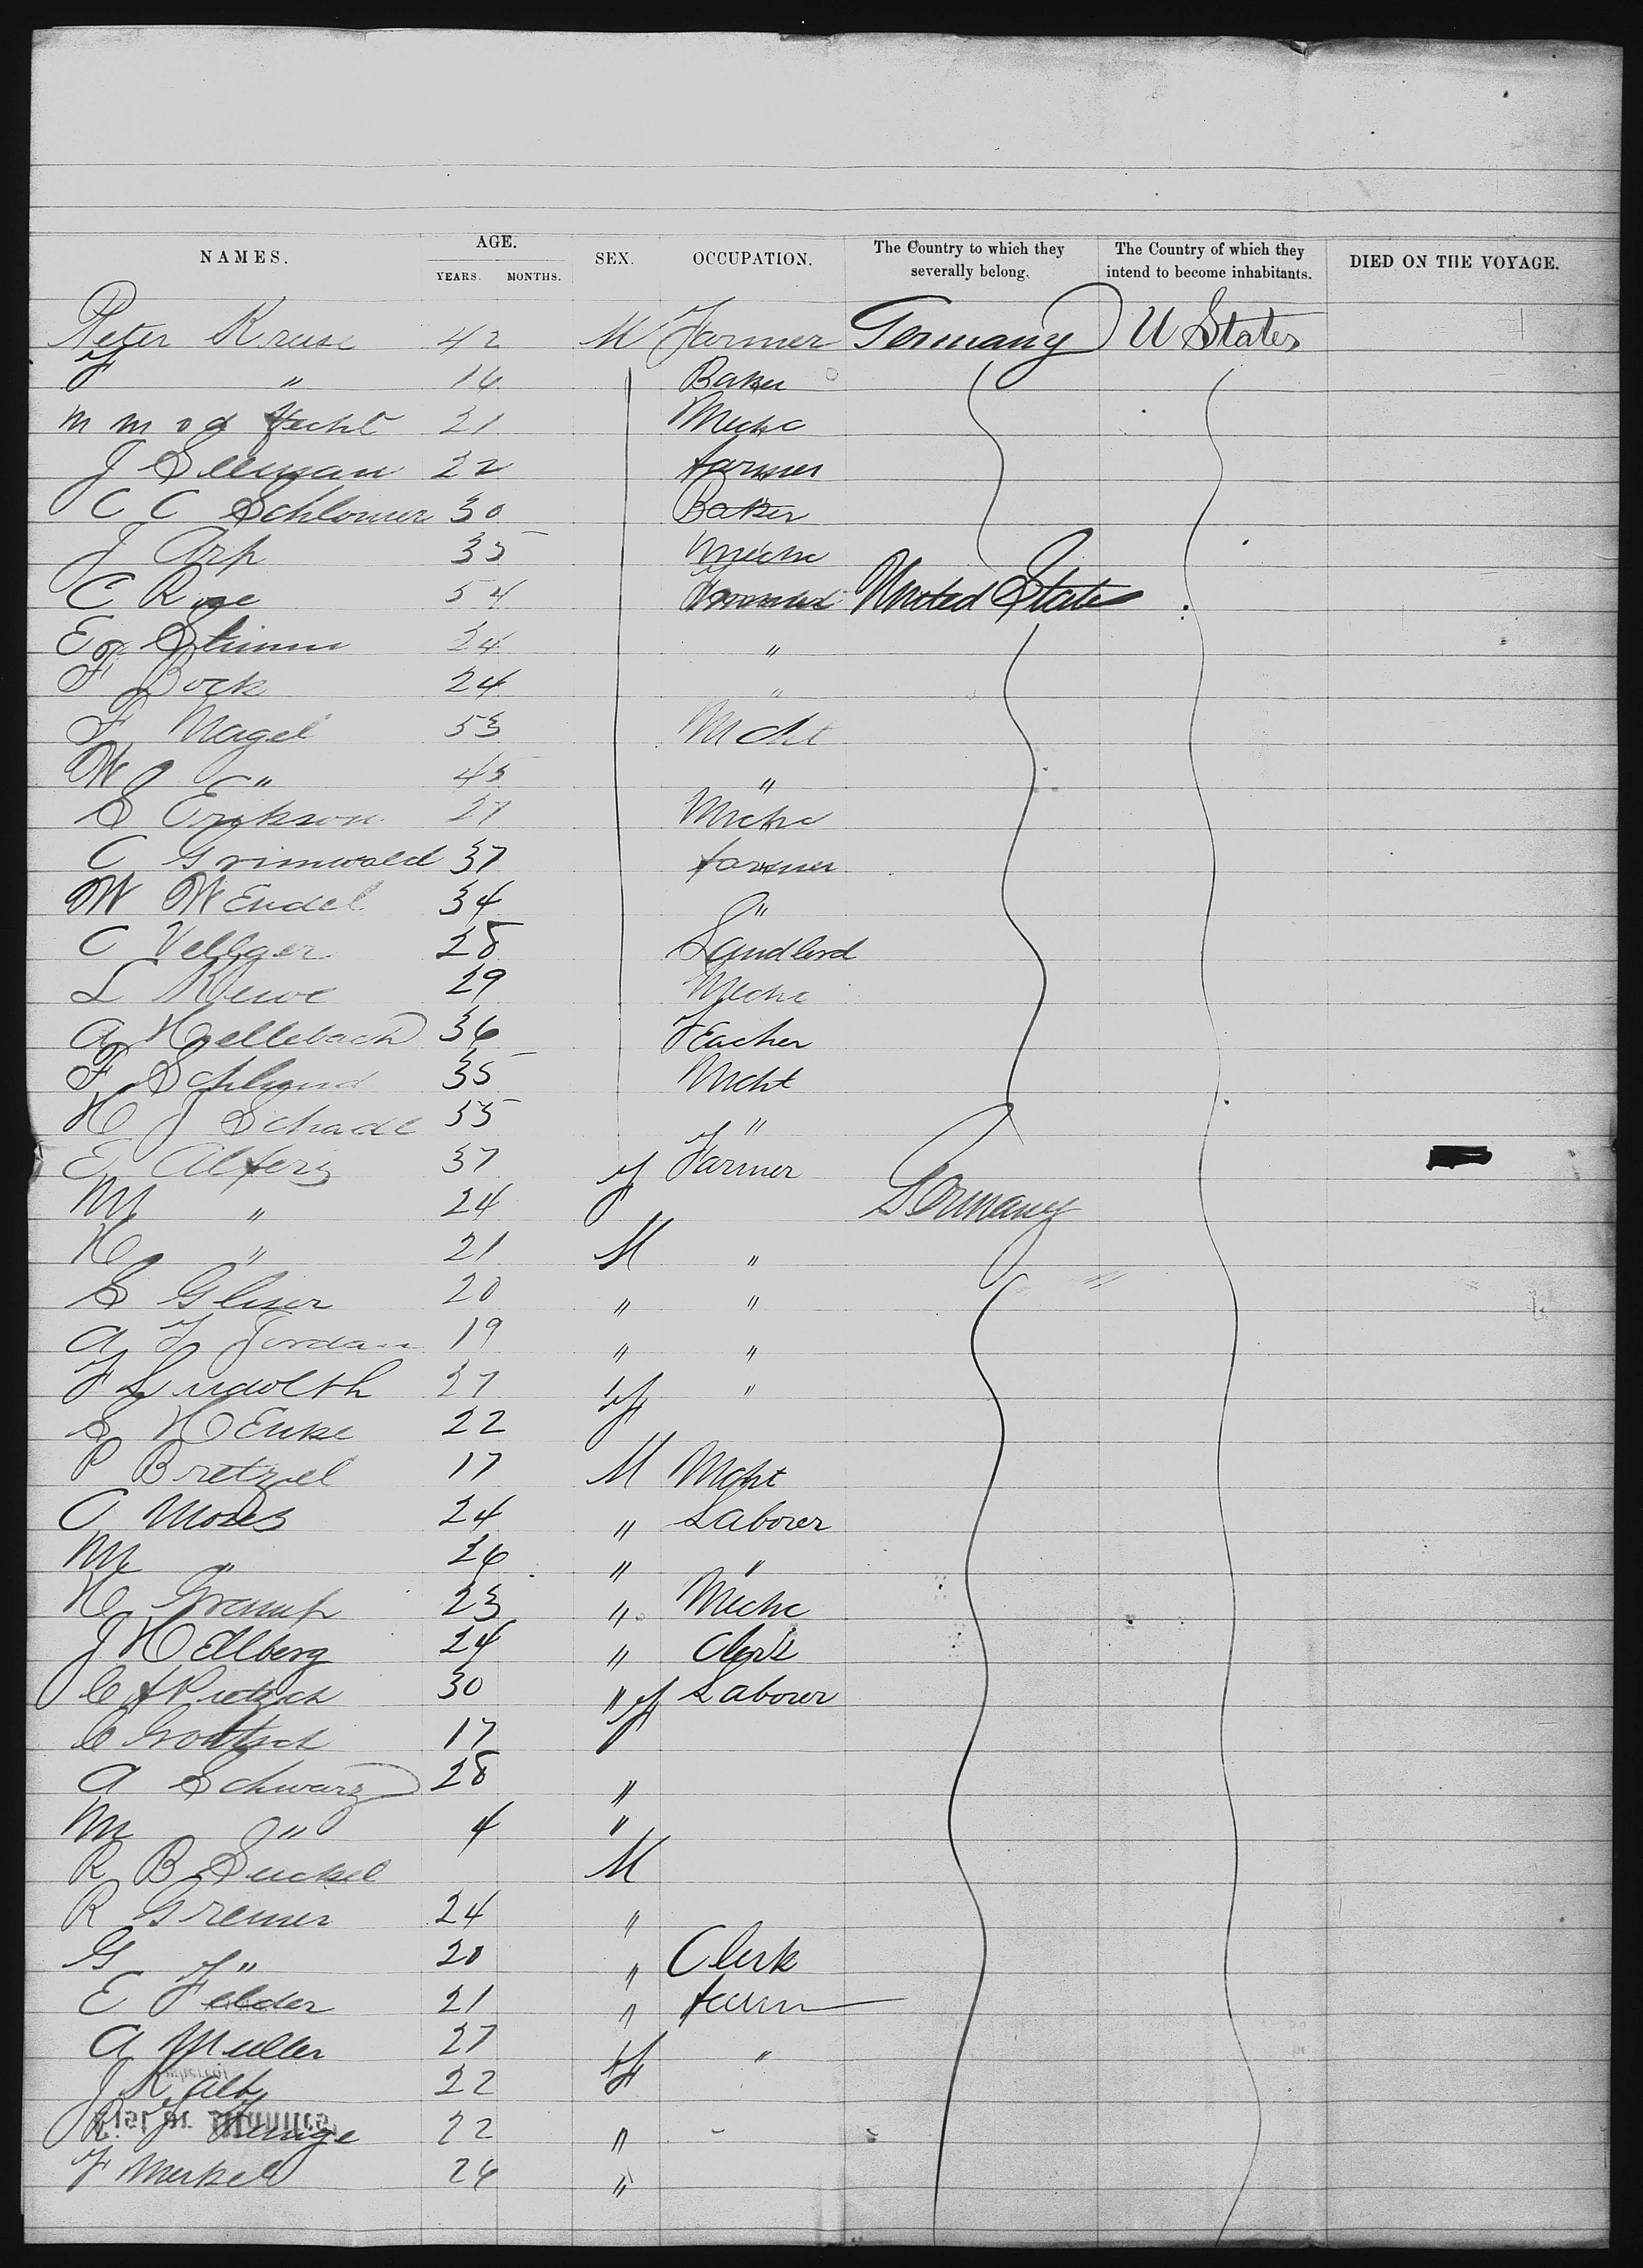 NAMES. AGE. YEARS. MONTHS. SEX. OCCUPATION. The Country to which they severally belong. The Country of which they intend to become inhabitants. DIED ON THE VOYAGE.
Peter Kruse 42 M Farmer Germany U States
F " 16 Baker
21 Mechc
J Seeman 22 farmer
C C Schlomer 30 Baker
J Arp 35 Mechc
C Rose 54 United States
24 "
F Bock 24 "
F Nagel 53 Mcht
W " 45 "
S Erikson 27 Mechc
C Grimwald 37 farmer
W Wendel 34 "
C Vellger 28 Landlord
L 29 Mechc
A Hellebach 36 Teacher
F 35 Mcht
H J Schade 35 "
E Alfers 37 f Farmer
M " 24 Germany
H " 21 M "
S Gliser 20 " "
A F Jordan 19 " "
F 27 f "
S Henke 22
P Bretzel 17 M Mcht
C Moses 24 " Laborer
M " 26 " "
H Gramp 23 " Mechc
J Hellberg 24 " Clerk
30 " Laborer
17 f
A Schwarz 28 "
M " 4 "
R B M
R Gremer 24 "
G " 20 " Clerk
E Felder 21 " farm
A Muller 27 f "
J Kalb 22
22 "
F Merkel 26 "